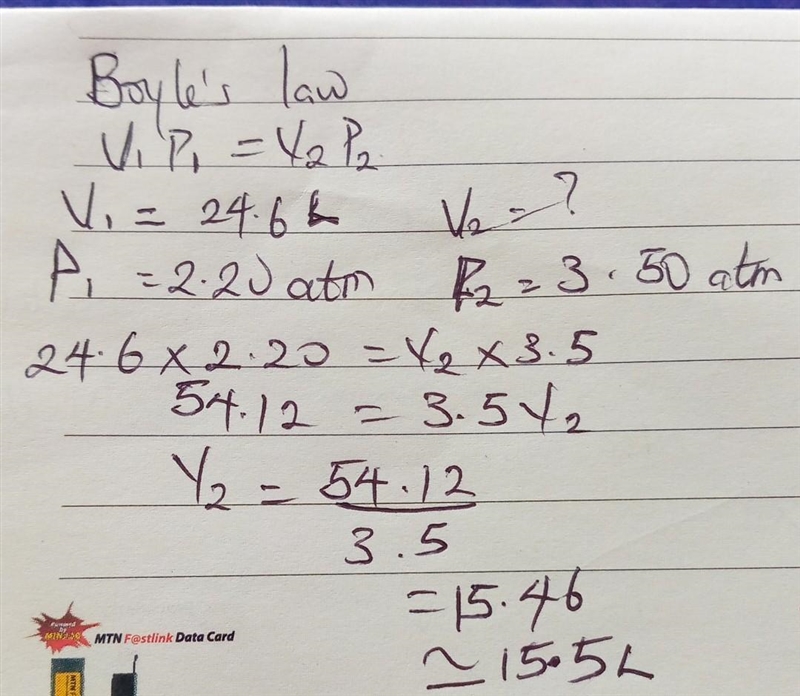 Boyle's law
V₁ P₁ = V₂ P₂
V₁ = 24.6 L V₂ = ?
P₁ = 2.20 atm P₂ = 3.50 atm
24.6 x 2.20 = V₂ x 3.5
54.12 = 3.5 V₂
V₂ = 54.12
3.5
= 15.46
≃ 15.5 L
Powered by
MTN 3.5G
MTN F@stlink Data Card